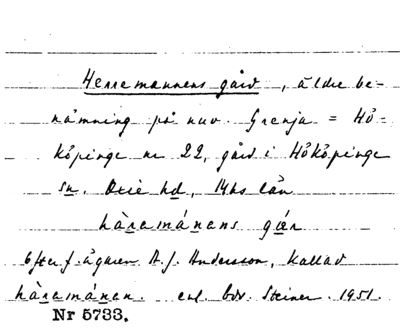 Herremannens gård, äldre be-
nämning på nuv. Grenja = Hö-
köpinge nr 22, gård i Hököpinge
sn. Oxie hd, Mhs län
hàramánans gær
Efter f. ägaren A. J. Andersson, kallad
hàramánen. enl. bdv. Steiner. 1951.
Nr 5733.